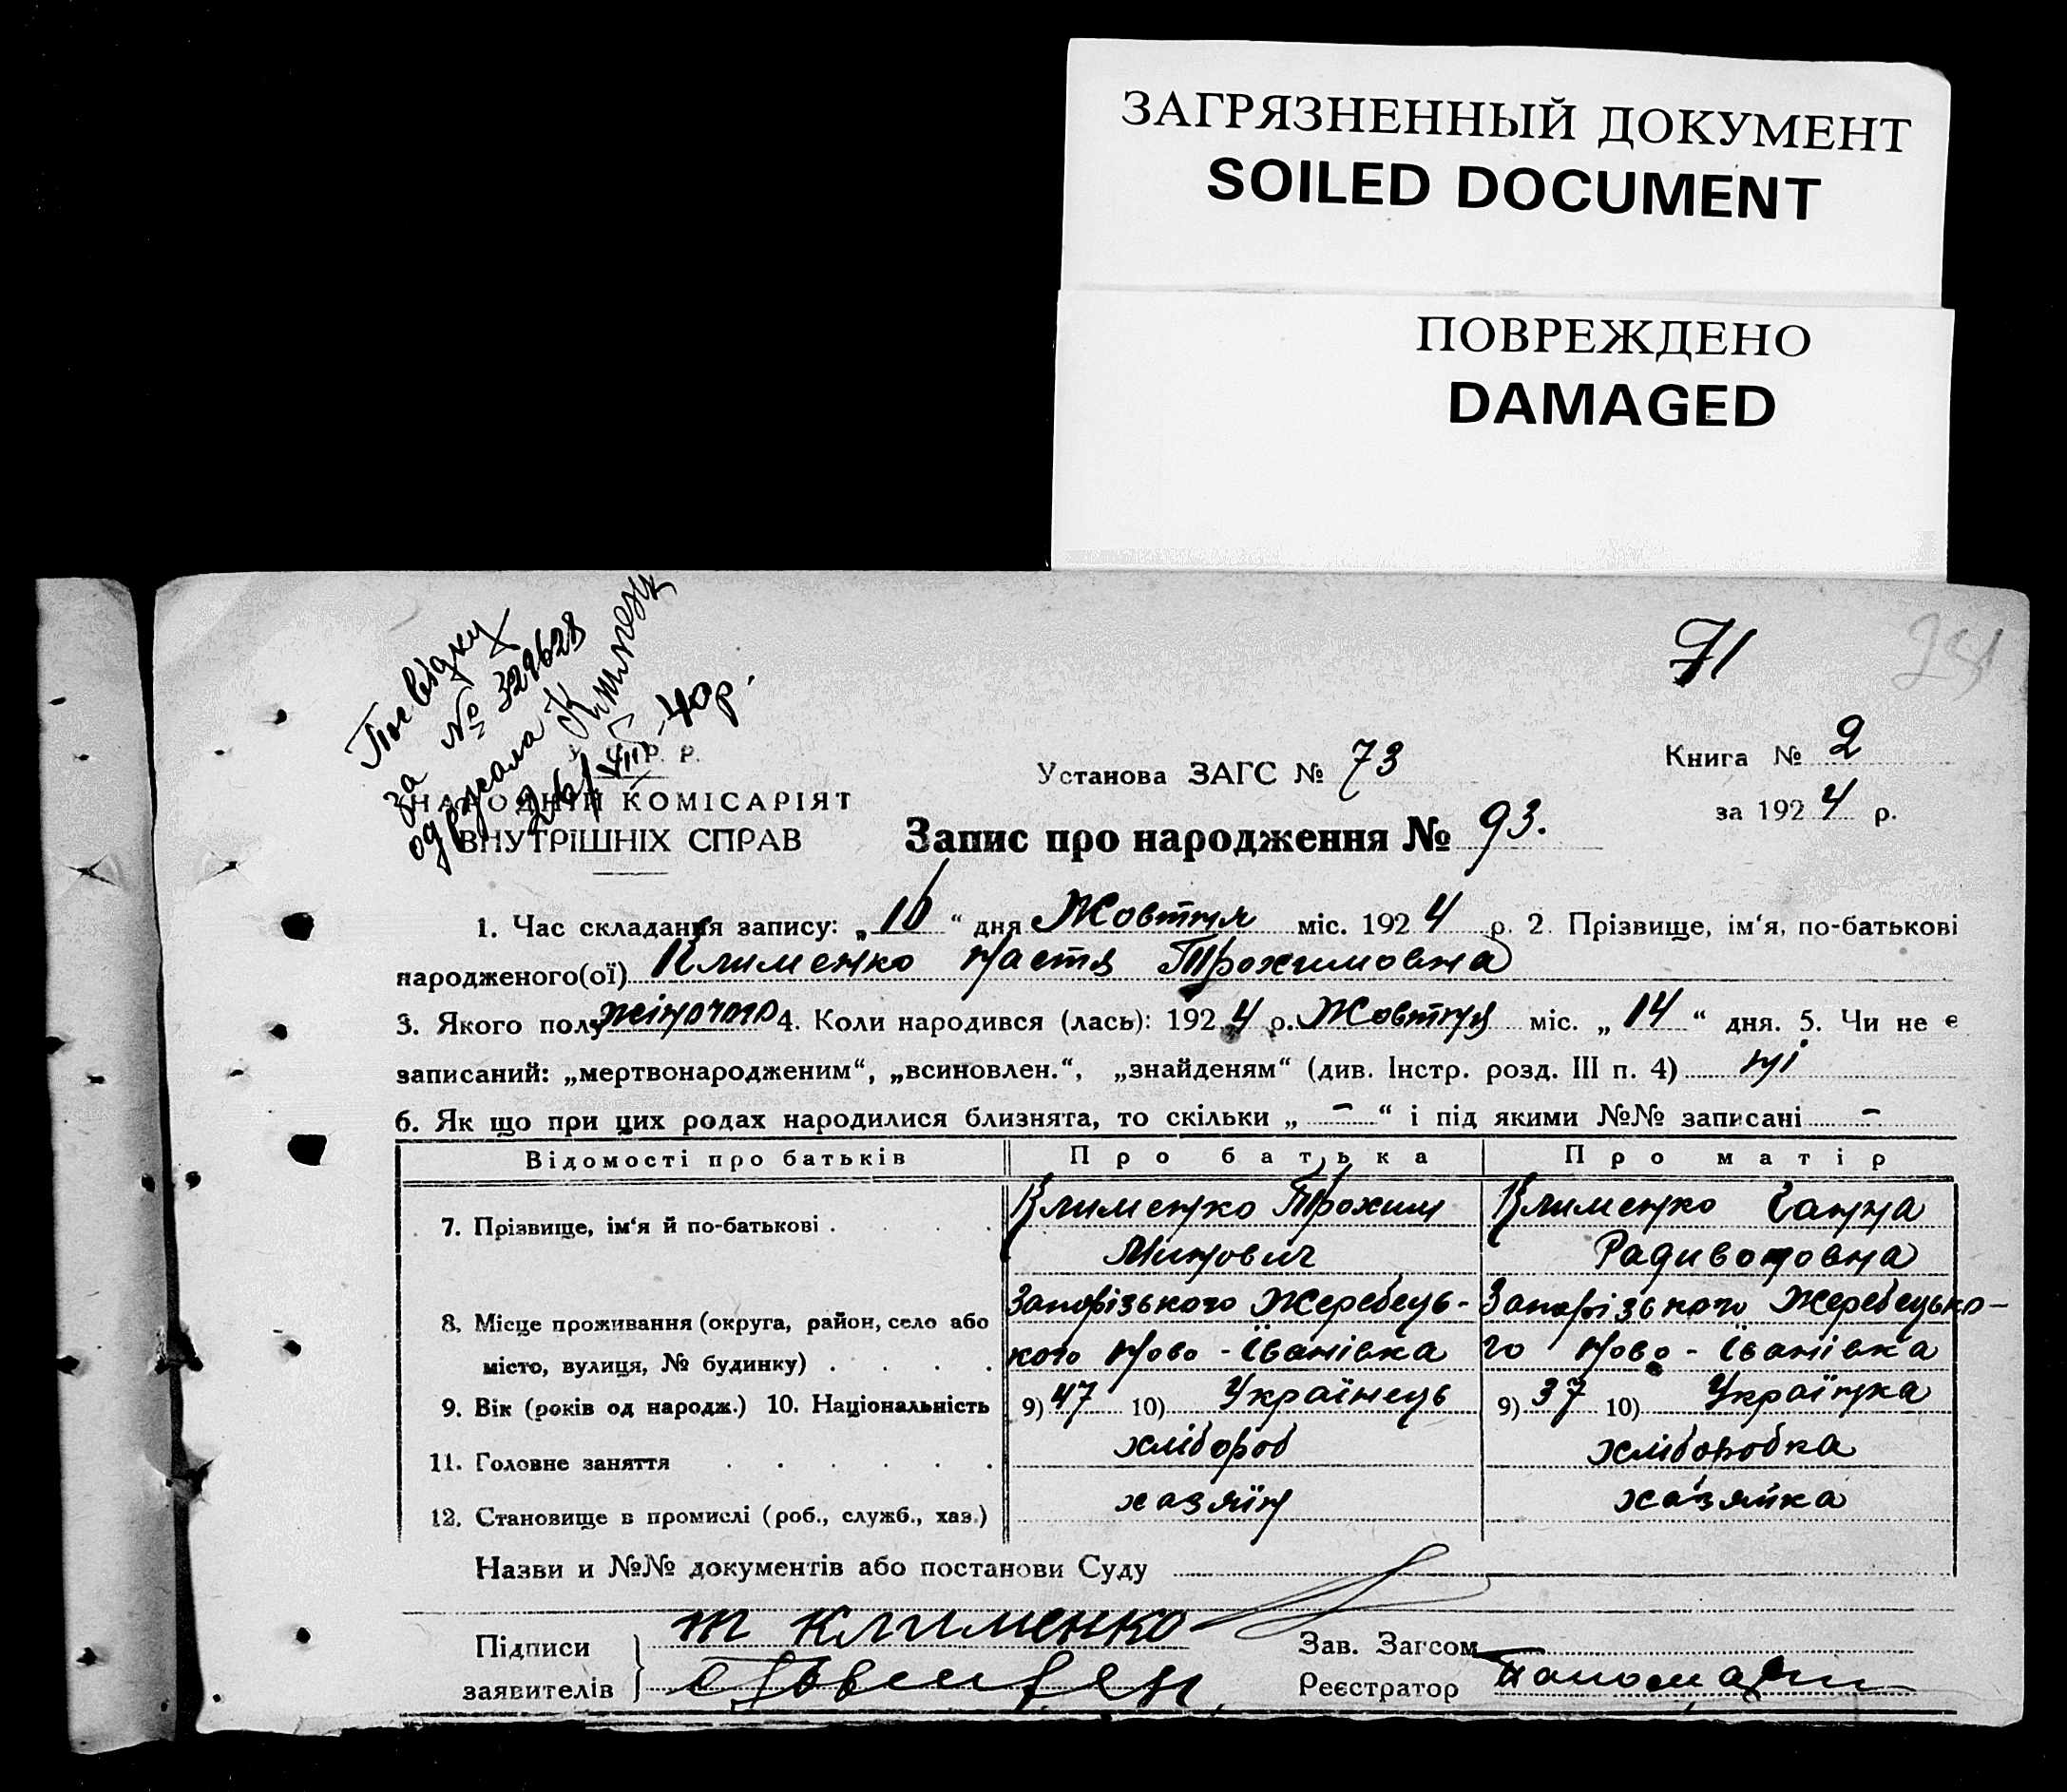 ЗАГРЯЗНЕННЫЙ ДОКУМЕНТ
SOILED DOCUMENT
ПОВРЕЖДЕНО
DAMAGED
71
Посвідку
за № 329628
одержала
40р.
НАРОДНІЙ КОМІСАРІЯТ
ВНУТРІШНІХ СПРАВ
Установа ЗАГС № 73
Книга № 2
за 1924 р.
Запис про народження № 93.
1. Час складання запису: „ “ дня Жовтня міс. 1924 р. 2. Прізвище, ім‘я, по-батькові
народженого(ої) Клименко Настя Трохимовна
3. Якого полу жіночого 4. Коли народився (лась): 1924 р. Жовтня міс. „14“ дня. 5. Чи не є
записаний: „мертвонародженим“, „всиновлен.“, „знайденям“ (див. Інстр. розд. III п. 4) ні
6. Як що при цих родах народилися близнята, то скільки „ - “ і під якими №№ записані -
Відомості про батьків Про батька Про матір
7. Прізвище, ім‘я й по-батькові . . . . Клименко Трохим Клименко Ганна
Минович Радивоновна
8. Місце проживання (округа, район, село або Запорізького Жеребець- Запорізького Жеребецько-
місто, вулиця, № будинку) . . . . кого Ново-Іванівка го Ново-Іванівка
9. Вік (років од народж.) 10. Національність 9) 47 10) Українець 9) 37 10) Українка
11. Головне заняття . . . . . . хлібороб хліборобка
12. Становище в промислі (роб., служб., хаз.) хазяїн хазяйка
Назви и №№ документів або постанови Суду
Підписи т клименко Зав. Загсом
заявителів Реєстратор